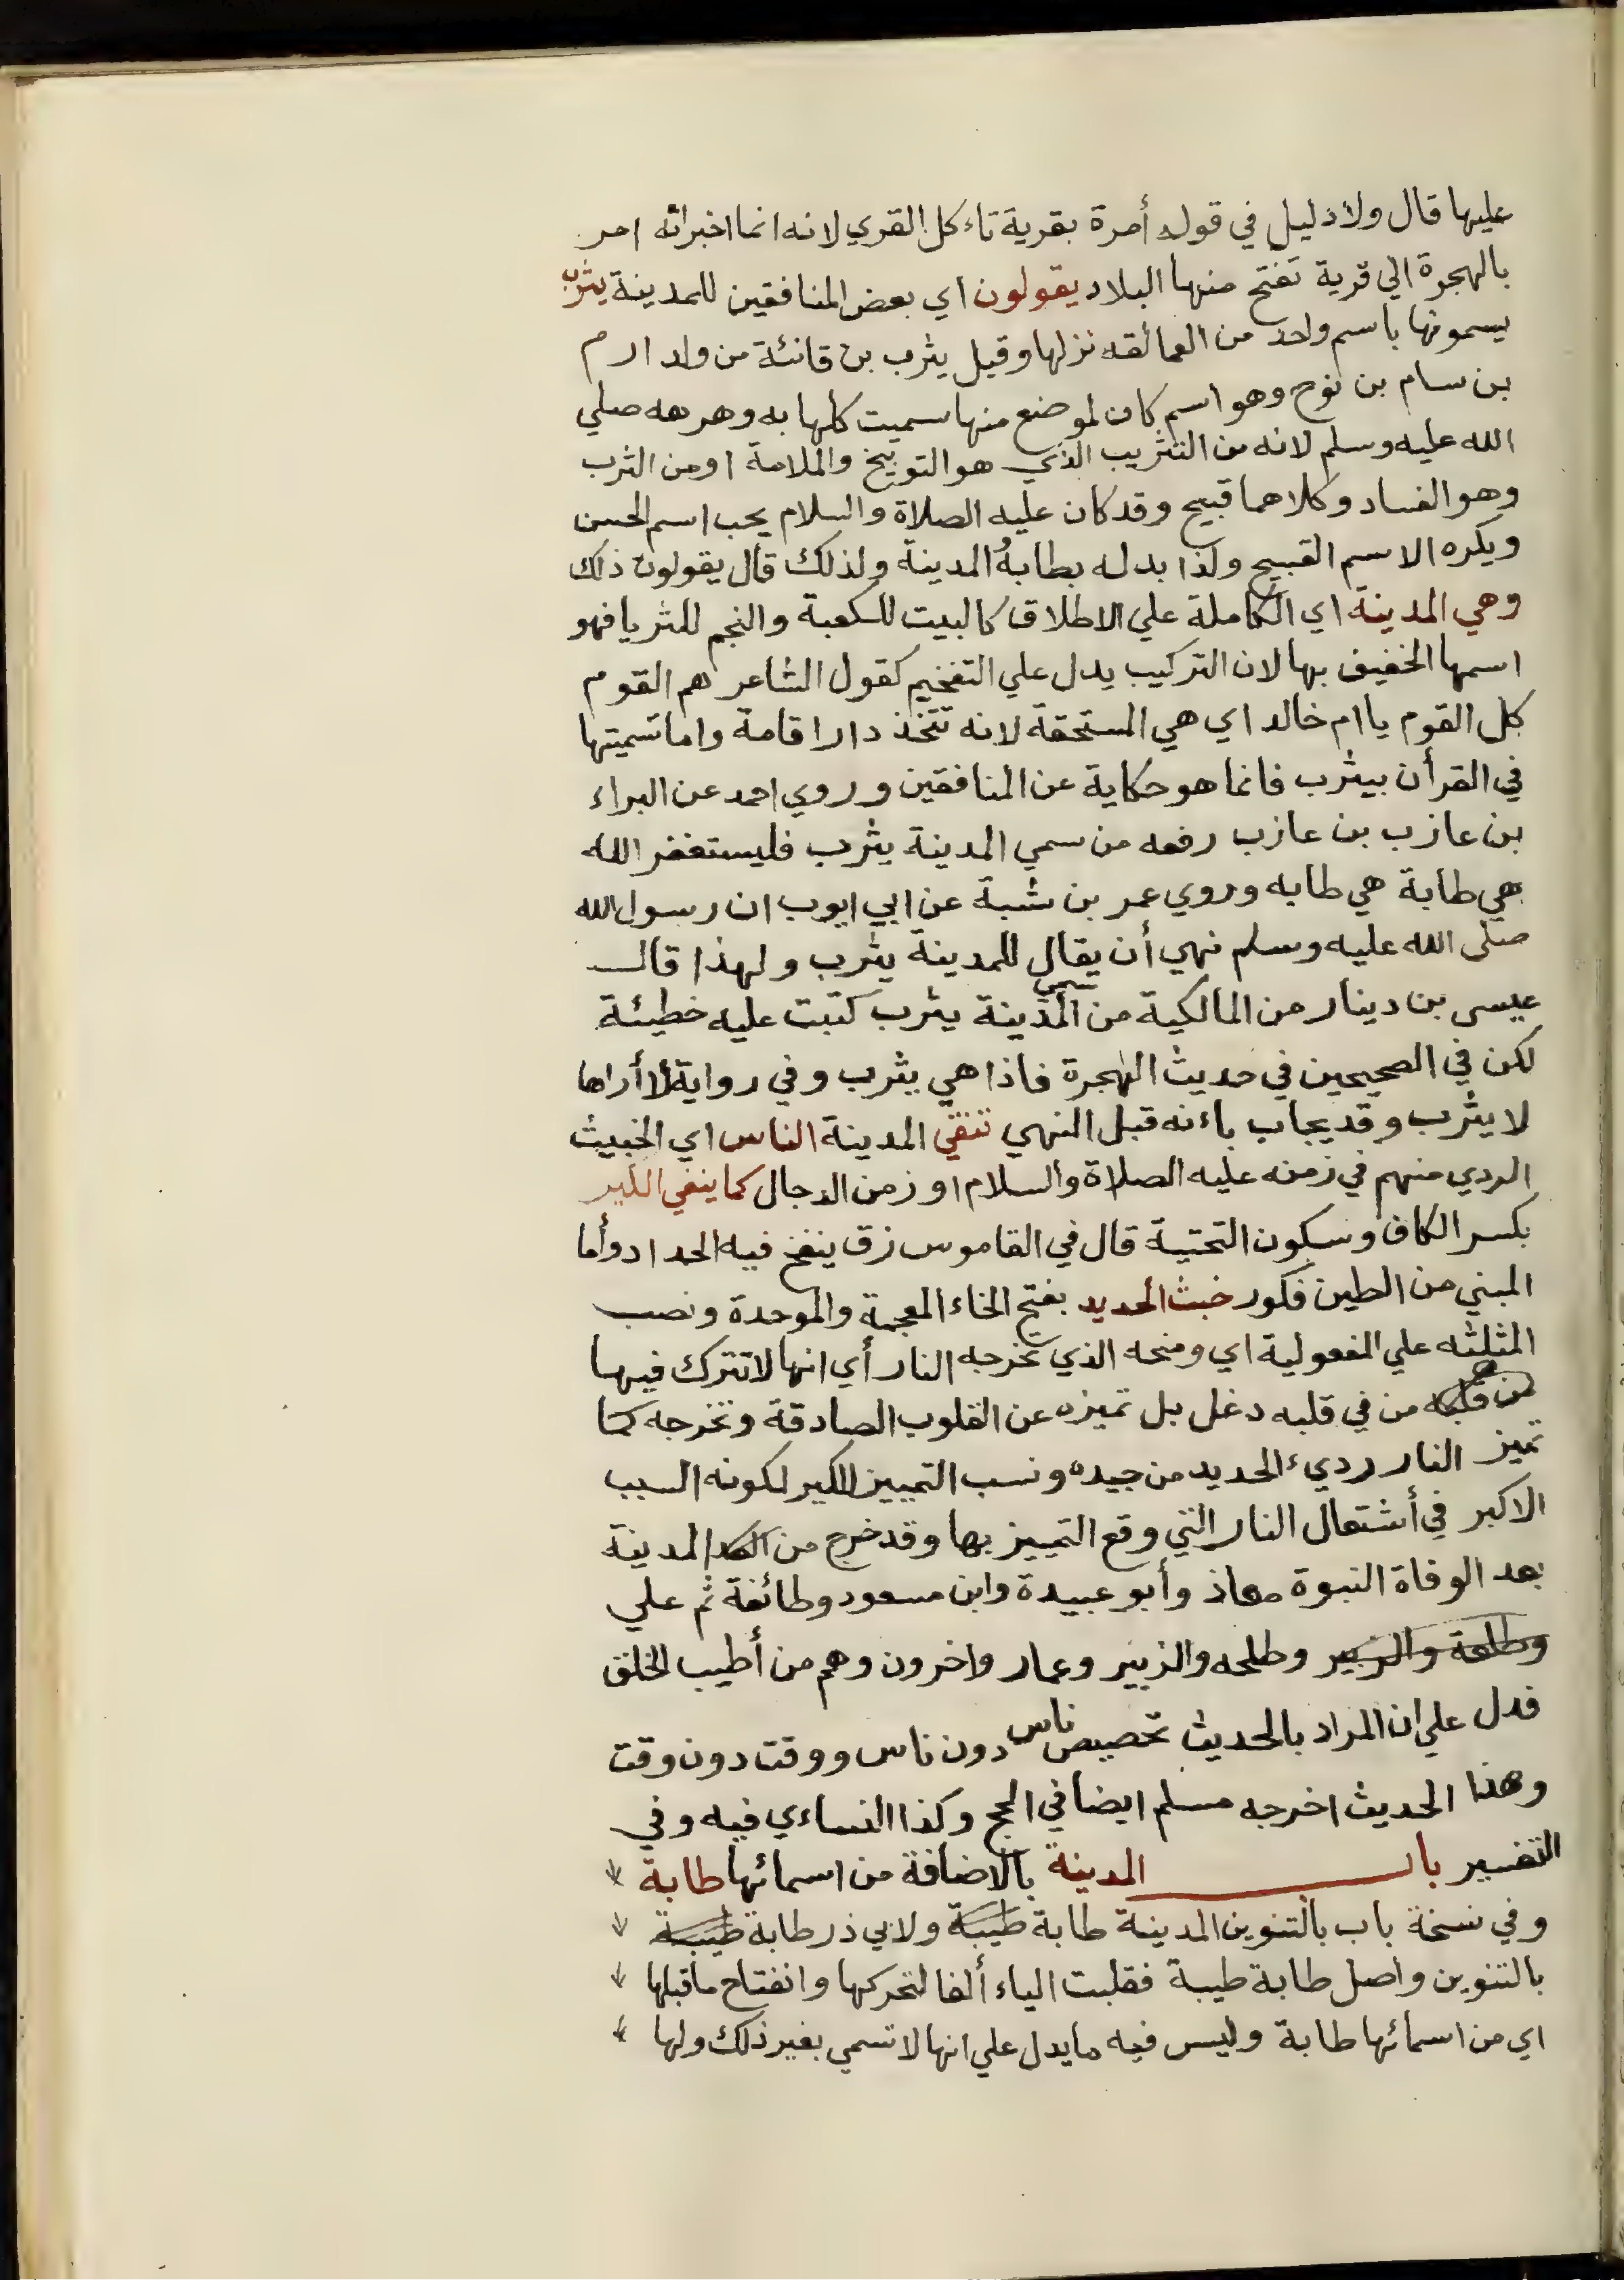 عليها قال ولا دليل في قوله أمرة بقرية تاءكل القري لانه انما اخبرانه امر
بالهجرة الي قرية تفتح منها البلاد يقولون اي بعض المنافقين للمدينة يثرب
يسمونها باسم واحد من العمالقه نزلها وقيل يثرب بن قانئة من ولد ارم
بن سام بن نوح وهو اسم كان لموضع منها سميت كلها به وهرهه صلي
الله عليه وسلم لانه من التثريب الذي هو التوبيخ والملامة اومن الثرب
وهو الفساد وكلاهما قبيح وقد كان عليه الصلاة والسلام يحب اسم الحسن
ويكره الاسم القبيح ولذا بدله بطابةُ المدينة ولذلك قال يقولون ذلك
وهي المدينة اي الكاملة علي الاطلاق كالبيت للكعبة والنجم للثريا فهو
اسمها الخفيف بها لان التركيب يدل علي التفخيم كقول الشاعر هم القوم
كل القوم يا ام خالد اي هي المستحقة لانه تتخذ دار اقامة واما تسميتها
في القرأن بيثرب فانما هو حكاية عن المنافقين وروي احمد عن البراء
بن عازب بن عازب رفعه من سمي المدينة يثرب فليستغفر الله
هي طابة هي طابه وروي عمر بن شبة عن ابي ايوب ان رسول الله
صلى الله عليه وسلم نهي أن يقال للمدينة يثرب ولهذا قال
عيسى بن دينار من المالكية من سمي المدينة يثرب كتبت عليه خطيئة
لكن في الصحيحين في حديث الهجرة فاذا هي يثرب وفي رواية لا أراها
لا يثرب وقد يجاب باءنه قبل النهي تنفي المدينة الناس اي الخبيث
الردي منهم في زمنه عليه الصلاة والسلام او زمن الدجال كما ينفي الكير
بكسر الكاف وسكون التحتية قال في القاموس زق ينفخ فيه الحداد وأما
المبني من الطين فكور خبث الحديد بفتح الخاء المعجمة والموحدة ونصب
المثلثه علي المفعولية اي ومنحه الذي تخرجه النار أي انها لا تترك فيها
من في قلبه دغل بل تميزه عن القلوب الصادقة وتخرجه كما
تميز النار رديء الحديد من جيده ونسب التمييز للكير لكونه السبب
الاكبر في أشتعال النار التي وقع التمييز بها وقد خرج من المدينة
بعد الوفاة النبوة معاذ وأبو عبيدة وابن مسعود وطائفة ثم علي
وطلحة والزبير وطلحه والزبير وعمار واخرون وهم من أطيب الخلق
فدل علي ان المراد بالحديث تخصيص ناس دون ناس ووقت دون وقت
وهذا الحديث اخرجه مسلم ايضا في الحج وكذا النساءي فيه وفي
التفسير باب المدينة بالاضافة من اسمائها طابة
وفي نسخة باب بالتنوين المدينة طابة طيبة ولابي ذر طابة طيبة
بالتنوين واصل طابة طيبة فقلبت الياء ألفا لتحركها وانفتاح ماقبلها
اي من اسمائها طابة وليس فيه مايدل علي انها لا تسمي بغير ذلك ولها